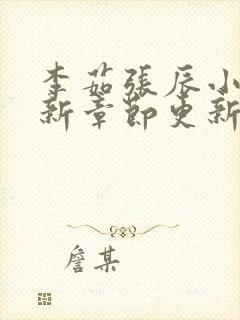 李茹張辰小
新章節更新
詹某